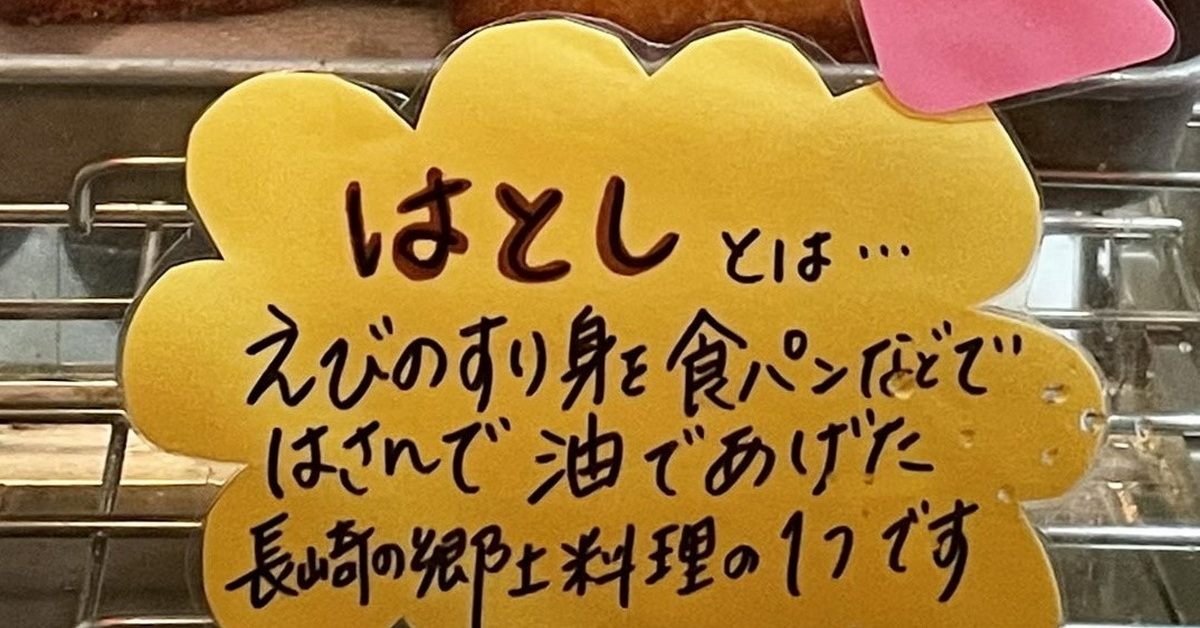 はとしとは…
えびのすり身を食パンなどで
はさんで油であげた
長崎の郷土料理の1つです